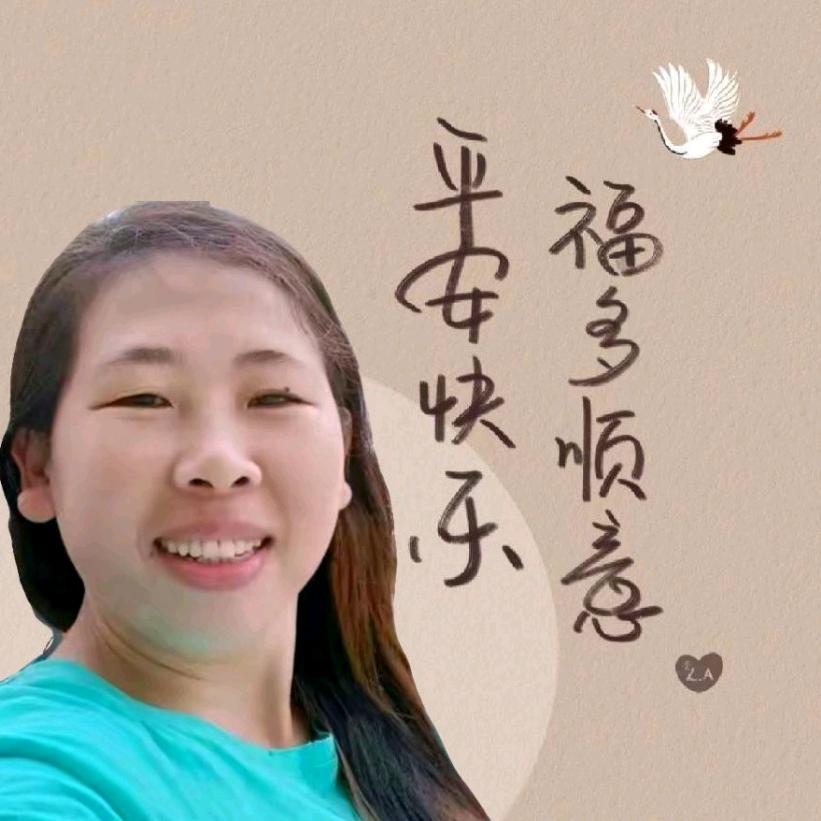 福多顺意
平安快乐
L.A